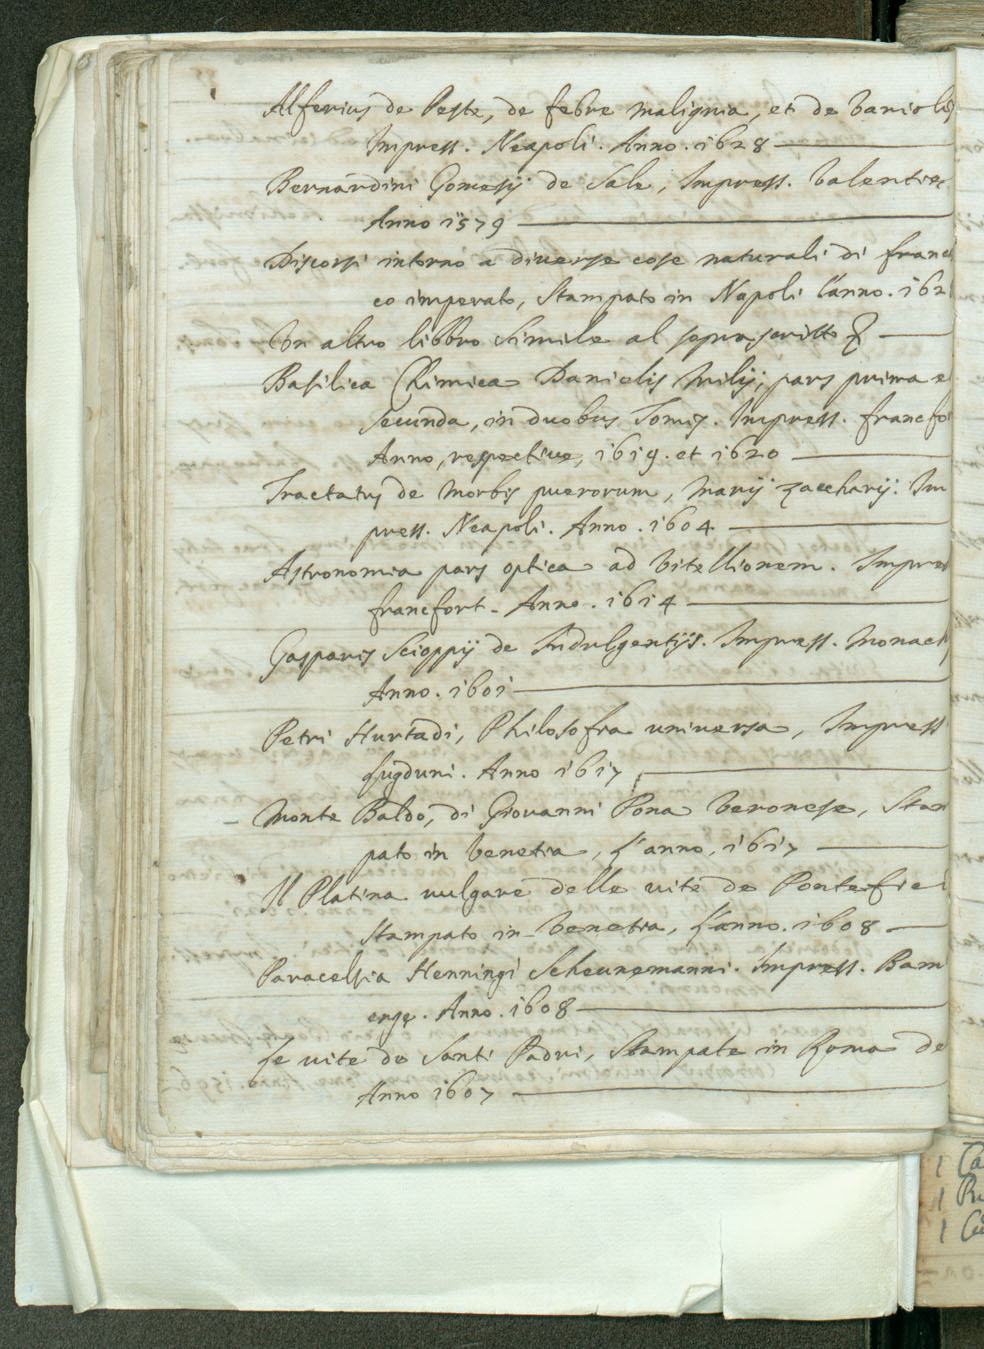 Alferius de Peste, de febre maligna, et de Variolis
Impress. Neapoli. Anno. 1628
Bernardini Gomesij de Sale, Impress. Valentiae
Anno 1579
Discorsi intorno a diverse cose naturali di franc
co imperato, Stampato in Napoli l'anno. 162
Un altro libbro simile al soprascritto
Basilica Chimica Danielis Milij, pars prima e
secunda, in duobus Tomis. Impress. francfo
Anno, respective, 1619. et 1620
Tractatus de Morbis puerorum, Marij Zaccharij. Im
press. Neapoli. Anno. 1604
Astronomia pars optica ad Vitellionem. Impres
francfort. Anno. 1614
Gasparis Scioppij de Indulgentijs. Impress. Monach
Anno. 1601
Petri Hurtadi, Philosofia universa, Impress
Lugduni. Anno 1617
Monte Baldo, di Giovanni Pona Veronese, Stam
pato in Venetia, L'anno, 1617
Il Platina vulgare delle vite de Pontefici
Stampato in Venetia, L'anno. 1608
Paracelsia Henningi Scheunemanni. Impress. Bam
ergę. Anno. 1608
Le vite de Santi Padri, Stampate in Roma de
Anno 1607
1 Ca
1
1